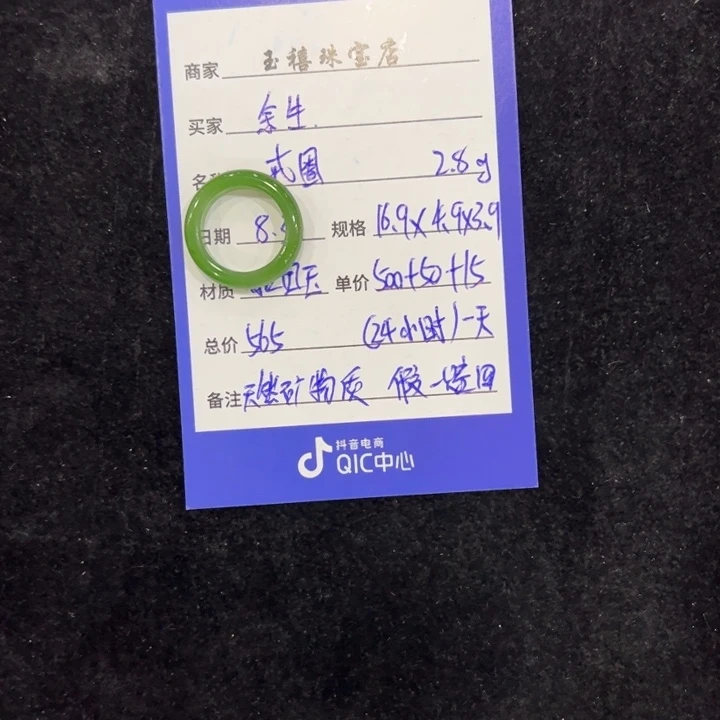 商家 玉禧珠宝店
买家 余生.
名 戒圈 2.8g
日期 8. 规格 16.9x4.9x3.9
材质 天 单价 500+50+15
总价 565 (24小时)一天
备注 天然矿物质 假一赔四
抖音电商
QIC中心